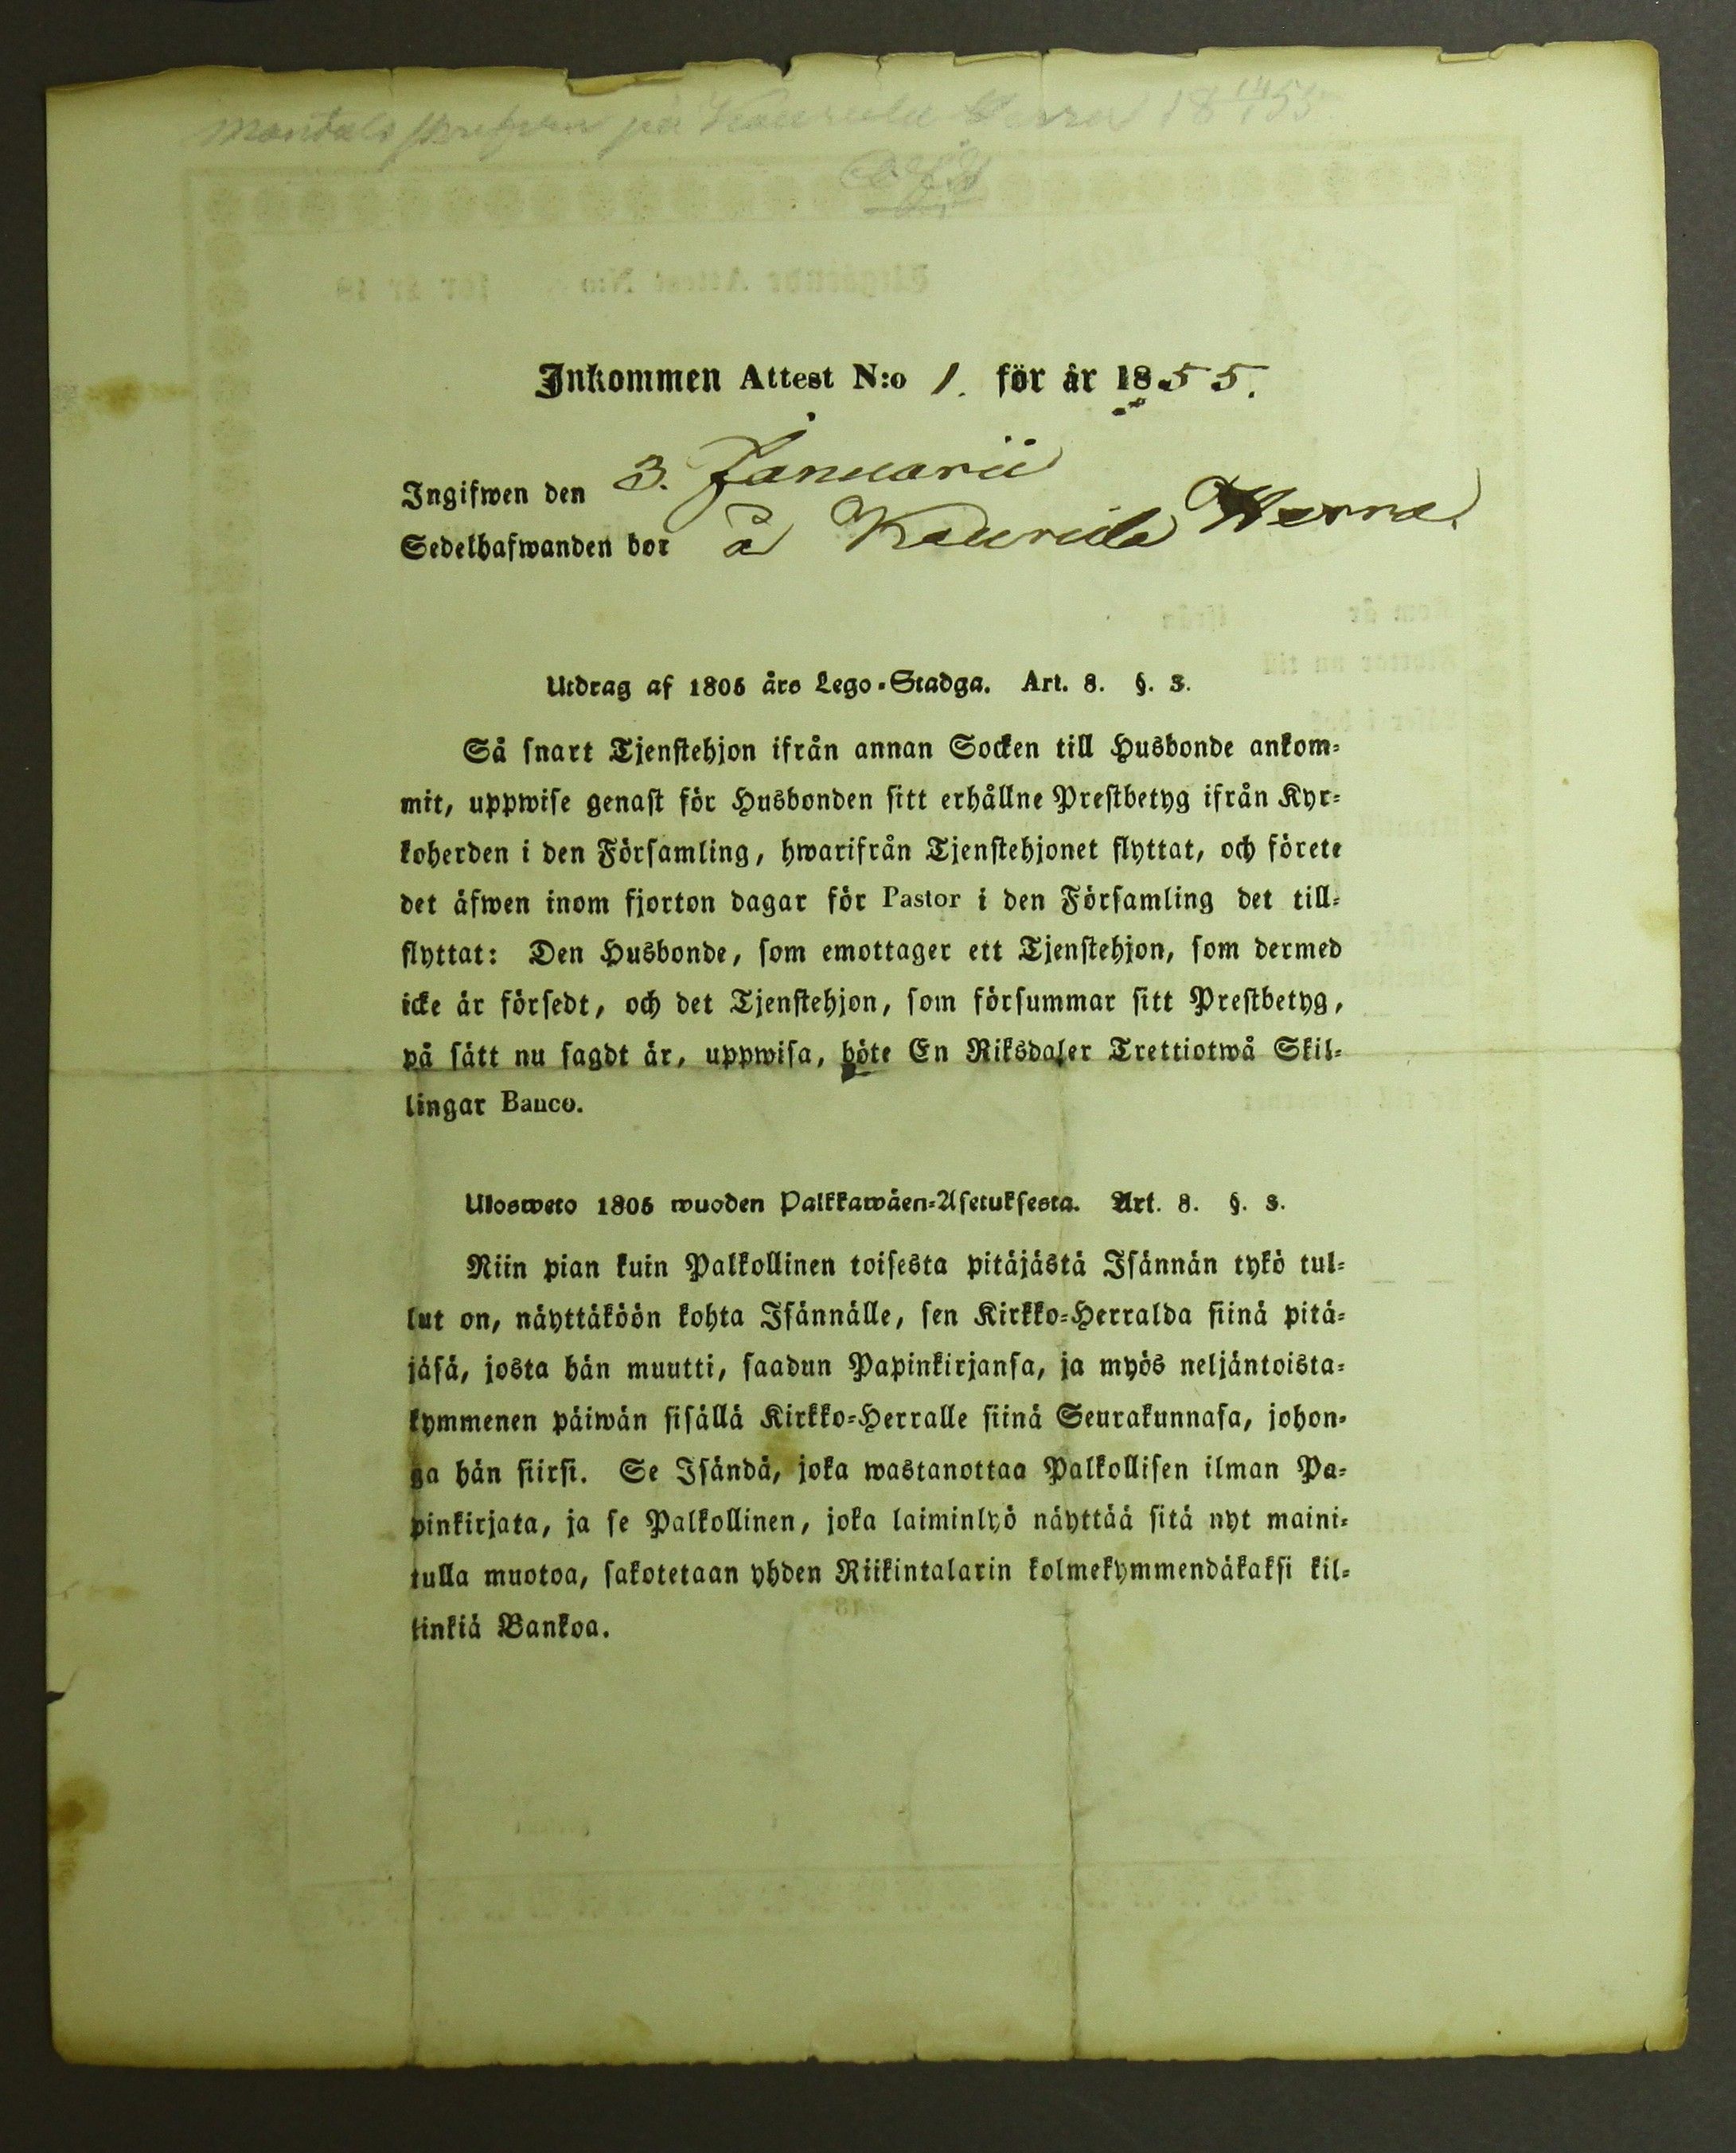 på Kaurila Herra 18 14/1 55
Inkommen Attest N:o 1. för år 1855.
Ingifwen den 3. Januarii
Sedelhafwanden bor å Kaurila Herra.
Utdrag af 1805 års Lego-Stadga. Art. 8. §. 3.
Så snart Tjenstehjon ifrån annan Socken till Husbonde ankom-
mit, uppwise genast för Husbonden sitt erhållne Prestbetyg ifrån Kyr-
koherden i den Församling, hwarifrån Tjenstehjonet flyttat, och förete
det äfwen inom fjorton dagar för Pastor i den Församling det till-
flyttat: Den Husbonde, som emottager ett Tjenstehjon, som dermed
icke är försedt, och det Tjenstehjon, som försummar sitt Prestbetyg,
på sätt nu sagdt är, uppwisa, böte En Riksdaler Trettiotwå Skil-
lingar Banco.
Ulosweto 1805 wuoden Palkkawäen-Asetuksesta. Art. 8. §. 3.
Niin pian kuin Palkollinen toisesta pitäjästä Isännän tykö tul-
lut on, näyttäköön kohta Isännälle, sen Kirkko-Herralda siinä pitä-
jäsä, josta hän muutti, saadun Papinkirjansa, ja myös neljäntoista-
kymmenen päiwän sisällä Kirkko-Herralle siinä Seurakunnasa, johon-
ga hän siirsi. Se Isändä, joka wastanottaa Palkollisen ilman Pa-
pinkirjata, ja se Palkollinen, joka laiminlyö näyttää sitä nyt maini-
tulla muotoa, sakotetaan yhden Riikintalarin kolmekymmendäkaksi kil-
linkiä Bankoa.